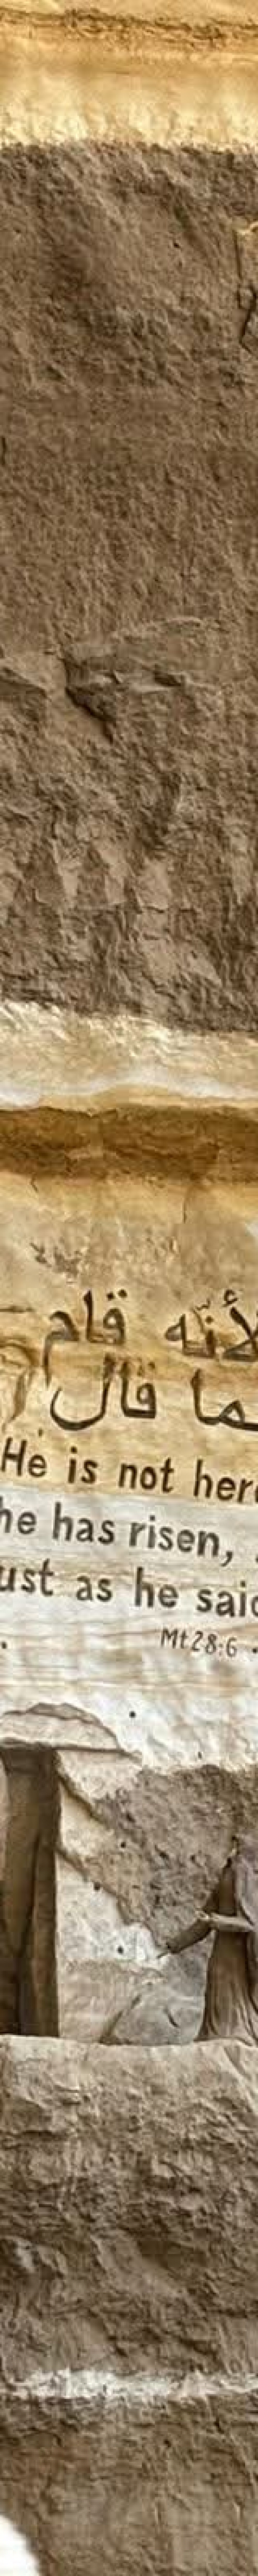 لأنّه قام
ما قال
He is not here
he has risen,
ust as he said
Mt 28:6